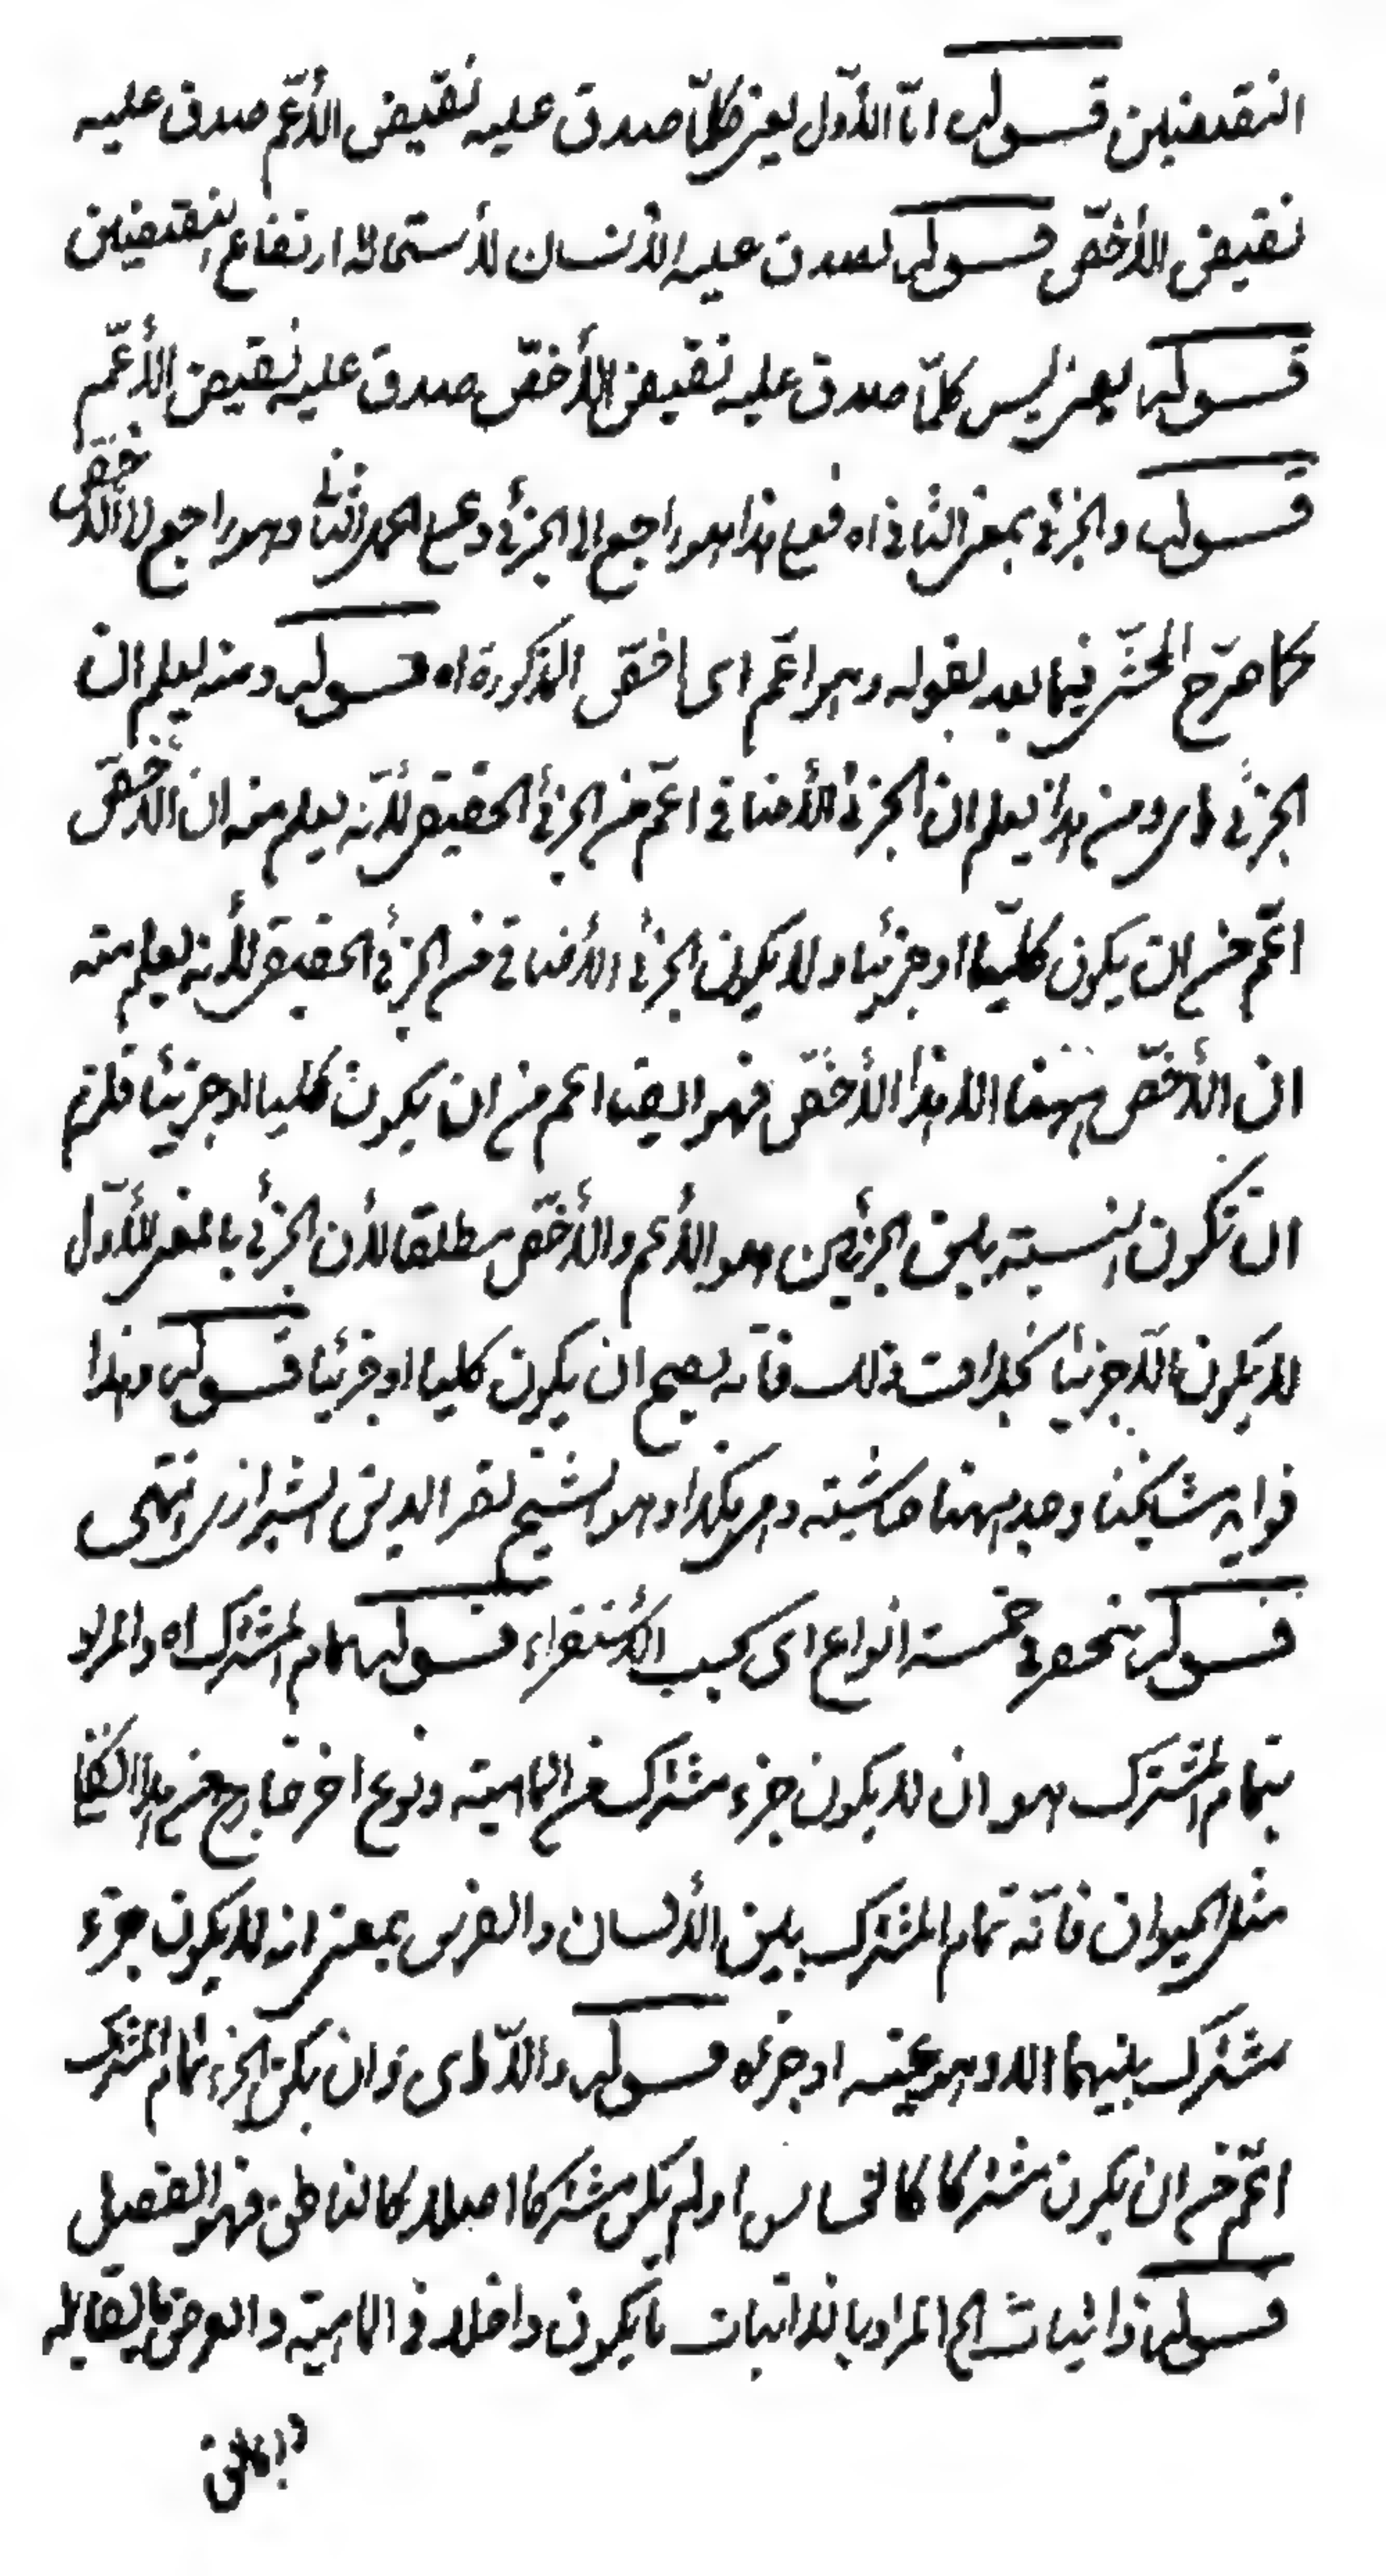 النقيضين قوله امّا الأوّل يعنى كلّما صدق عليه نقيض الأعّم صدق عليه
نقيض الأخصّ قوله لصدق عليه الأنسان لأستحالة ارتفاع النقيضين
قوله يعنى ليس كلّما صدق عليه نقيض الأخصّ صدق عليه نقيض الأعّم
قوله والجزئى بمعنى الثانى اه فعلى هذا هو راجع الى الجزئى وعلى الحمل الثانى وهو راجع الى الأخصّ
كما صرّح المحشّى فيما بعد بقوله وهو اعّم اى اخصّ المذكورة اه قوله ومنه يعلم ان
الجزئى اى ومن هذا يعلم ان الجزئى الأضافى اعّم من الجزئى الحقيقى لأنّه يعلم منه ان الأخصّ
اعّم من ان يكون كليّا او جزئيا ولا يكون الجزئى الأضافى من الجزئى الحقيقى لأنه يعلم منه
ان الأخصّ ههنا الا هذا الأخصّ فهو ايضا اعم من ان يكون كليا او جزئيا فلزم
ان تكون النسبته بين الجزئين هو الأعم والأخصّ مطلقا لأن الجزئى بالمعنى الأوّل
لا يكون الا جزئيا بخلاف ذلك فأنه يصح ان يكون كليا او جزئيا قوله وهذا
فوايد مشايخنا وجد ههنا حاشيته وهى هكذا وهو الشيخ نصر الدين الشيرازى انتهى
قوله منحصر فى خمسته انواع اى بحسب الأستقراء قوله تمام المشترك اه والمراد
بتمام المشترك هو ان لا يكون جزء مشترك من الماهيته ونوع اخر خارج عن هذا
مثل الحيوان فأنّه تمام المشترك بين الأنسان والفرس بمعنى انه لا يكون جزء
مشترك بينهما الا وهو عينه او جزئه قوله والّا اى وان لم يكن الجزء تمام المشترك
اعّم من ان يكون مشتركا كالحساس او لم يكن مشتركا اصلا كالناطق فهو الفصل
قوله ذاتيات الخ المراد بالذاتيات ما يكون داخلا فى الماهيته والعرضى ما يقابله